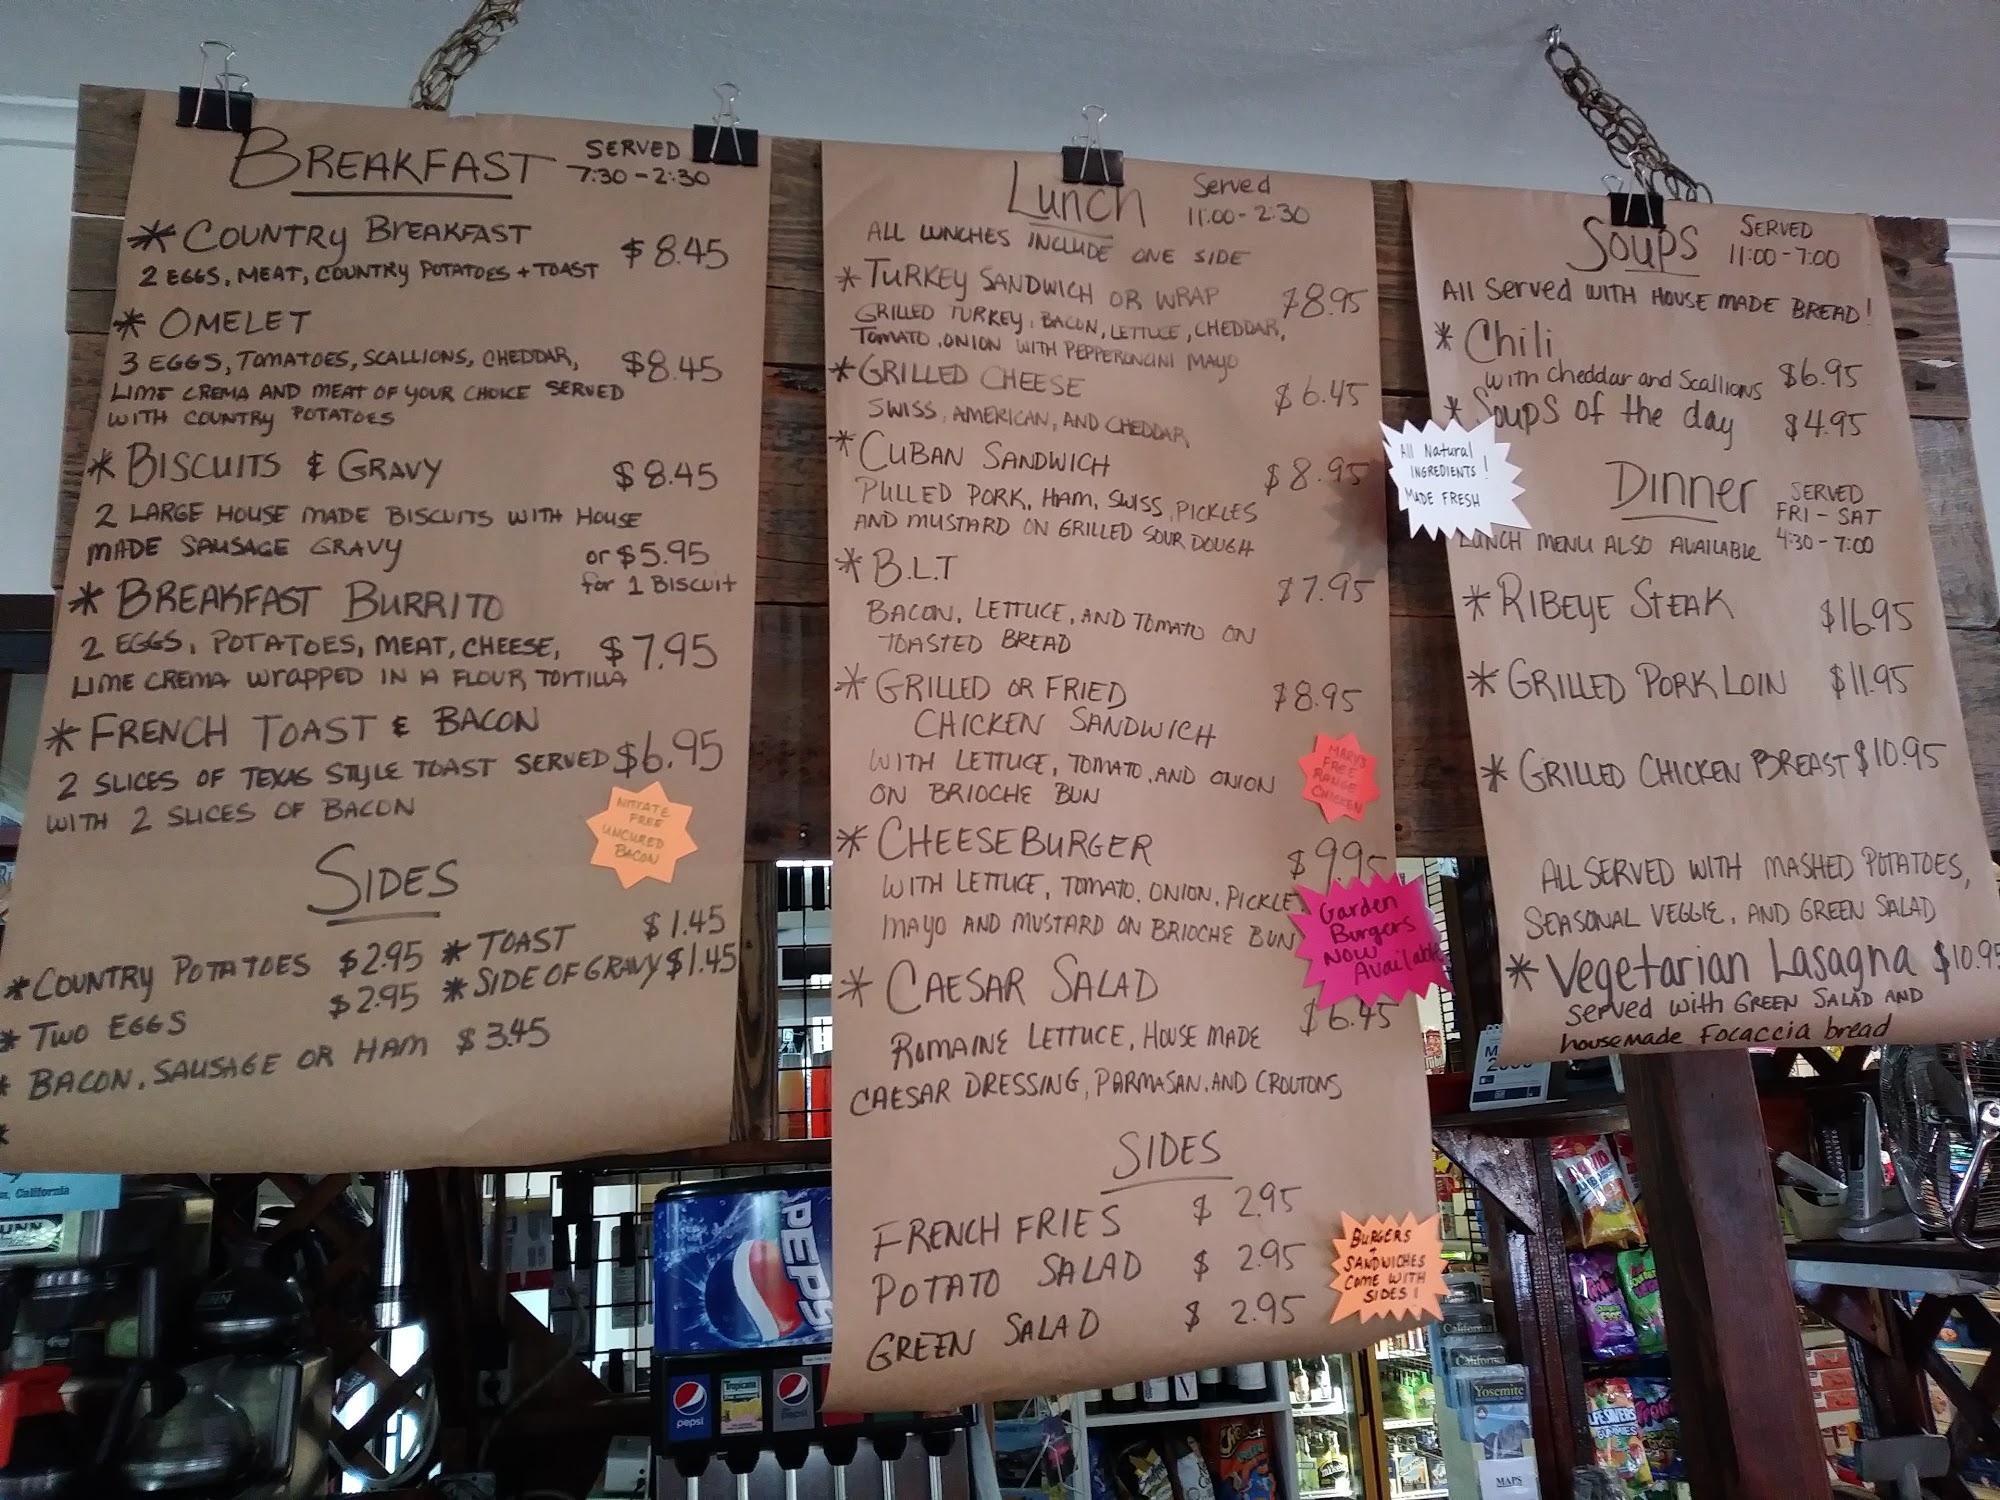 BREAKFAST
SERVED
7:30 - 2:30
* COUNTRY BREAKFAST $8.45
2 EGGS, MEAT, COUNTRY POTATOES + TOAST
* OMELET
3 EGGS, TOMATOES, SCALLIONS, CHEDDAR, $8.45
LIME CREMA AND MEAT OF YOUR CHOICE SERVED
WITH COUNTRY POTATOES
* BISCUITS & GRAVY $8.45
2 LARGE HOUSE MADE BISCUITS WITH HOUSE
MADE SAUSAGE GRAVY or $5.95
for 1 BISCUIT
* BREAKFAST BURRITO
2 EGGS, POTATOES, MEAT, CHEESE, $7.95
LIME CREMA WRAPPED IN A FLOUR TORTILLA
* FRENCH TOAST & BACON
2 SLICES OF TEXAS STYLE TOAST SERVED $6.95
WITH 2 SLICES OF BACON
NITRATE
FREE
UNCURED
BACON
SIDES
* COUNTRY POTATOES $2.95 * TOAST $1.45
* TWO EGGS $2.95 * SIDE OF GRAVY $1.45
* BACON, SAUSAGE OR HAM $3.45
*
Lunch
Served
11:00 - 2:30
ALL LUNCHES INCLUDE ONE SIDE
* TURKEY SANDWICH OR WRAP $8.95
GRILLED TURKEY, BACON, LETTUCE, CHEDDAR,
TOMATO, ONION WITH PEPPERONCINI MAYO
* GRILLED CHEESE $6.45
SWISS, AMERICAN, AND CHEDDAR
* CUBAN SANDWICH $8.95
PULLED PORK, HAM, SWISS, PICKLES
AND MUSTARD ON GRILLED SOUR DOUGH
* B.L.T $7.95
BACON, LETTUCE, AND TOMATO ON
TOASTED BREAD
* GRILLED OR FRIED $8.95
CHICKEN SANDWICH
WITH LETTUCE, TOMATO, AND ONION
ON BRIOCHE BUN
MARY'S
FREE
RANGE
CHICKEN
* CHEESEBURGER $9.95
WITH LETTUCE, TOMATO, ONION, PICKLE,
MAYO AND MUSTARD ON BRIOCHE BUN
Garden
Burgers
NOW
Available
* CAESAR SALAD $6.45
ROMAINE LETTUCE, HOUSE MADE
CAESAR DRESSING, PARMASAN, AND CROUTONS
SIDES
FRENCH FRIES $ 2.95
POTATO SALAD $ 2.95
GREEN SALAD $ 2.95
BURGERS
+
SANDWICHES
COME WITH
SIDES!
Soups
SERVED
11:00 - 7:00
All Served WITH HOUSE MADE BREAD!
* Chili
with Cheddar and Scallions $6.95
* Soups of the day $4.95
All Natural
INGREDIENTS!
MADE FRESH
Dinner
SERVED
FRI - SAT
4:30 - 7:00
LUNCH MENU ALSO AVAILABLE
* RIBEYE STEAK $16.95
* GRILLED PORK LOIN $11.95
* GRILLED CHICKEN BREAST $10.95
ALL SERVED WITH MASHED POTATOES,
SEASONAL VEGGIE, AND GREEN SALAD
* Vegetarian Lasagna $10.95
Served with GREEN SALAD AND
housemade Focaccia bread
California
PEPSI
pepsi
Tropicana
pepsi
California
California
Yosemite
MAPS
LIFESAVERS
GUMMIES